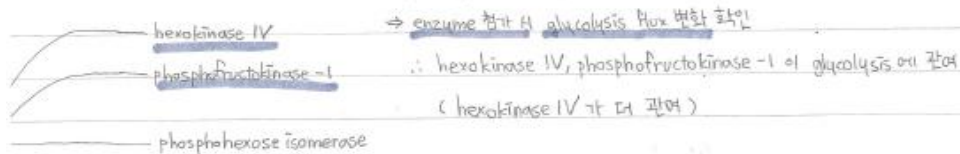 hexokinase IV
phosphofructokinase-1
phosphohexose isomerase
⇒ enzyme 첨가 시 glycolysis flux 변화 확인
∴ hexokinase IV, phosphofructokinase-1 이 glycolysis에 관여
( hexokinase IV가 더 관여 )